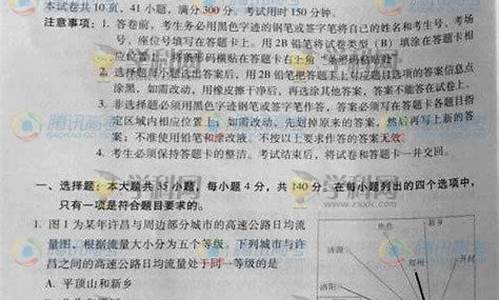 本试卷共10页,41小题,满分300分。考试用时150分钟。
注意事项:1. 答卷前,考生务必用黑色字迹的钢笔或签字笔将自己的姓名和考生号、考场
号、座位号填写在答题卡上。用2B铅笔将试卷类型(B)填涂在答题卡相
应位置上。将条形码横贴在答题卡右上角“条形码粘贴处”
2. 选择题每小题选出答案后,用2B铅笔把答题卡上对应题目选项的答案信息点
涂黑,如需改动,用橡皮擦干净后,再选涂其他答案,答案不能答在试卷上。
3. 非选择题必须用黑色字迹钢笔或签字笔作答,答案必须写在答题卡各题目指
定区域内相应位置上;如需改动,先划掉原来的答案,然后再写上新的答
案;不准使用铅笔和涂改液。不按以上要求作答的答案无效。
4. 考生必须保持答题卡的整洁。考试结束后,将试卷和答题卡一并交回。
一、选择题:本大题共35小题,每小题4分,共140分。在每小题列出的四个选项中,
只有一项是符合题目要求的。
1. 图1为某年许昌与周边部分城市的高速公路日均流
量图,根据流量大小分为五个等级,下列城市与许
昌之间的高速公路日均流量处于同一等级的是
A. 平顶山和新乡
焦作
新乡
济源
郑州
开封
洛阳
学科网
www.zxxk.com
腾讯高考